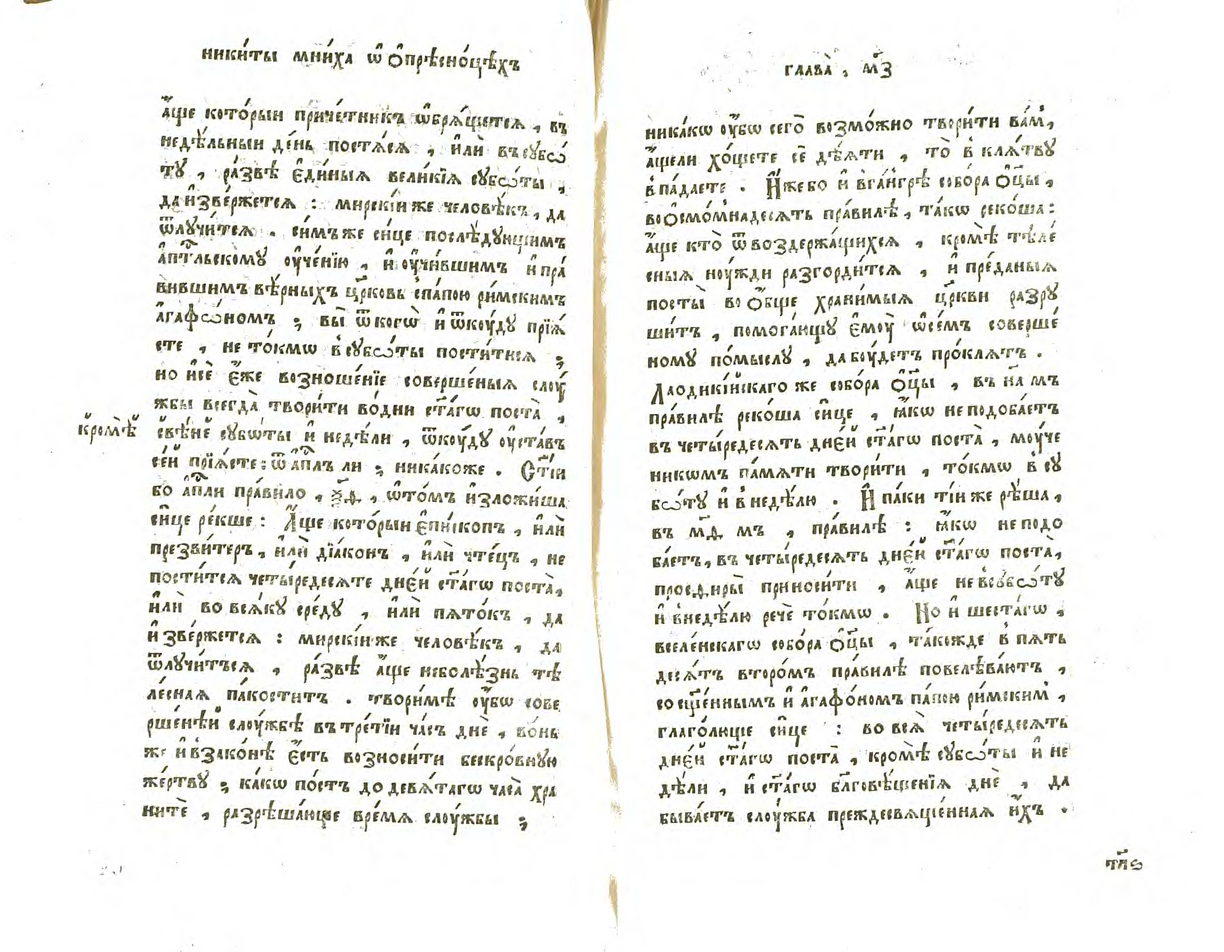 ники́ты мни́ха ѡ҆ ѻ҆прѣсно́цѣхъ
а҆́ще кото́рыи приче́тникъ ѡ҆брѧ́щетсѧ , въ
недѣ́льныи де́нь постѧ́сѧ , и҆лѝ въ сꙋбѡ́
тꙋ , ра́звѣ є҆ди́ныѧ вели́кїѧ сꙋбѡты ,
да и҆зве́ржетсѧ : мирскі́и же человѣ́къ , да
ѿлꙋчи́тсѧ . си́мъ же си́це послѣ́дꙋющимъ
а҆пⷭ҇льскомꙋ оу҆че́нїю , и҆ оу҆чи́вшимъ и҆ пра́
вившимъ вѣ́рныхъ цр҃ковь спа́пою ри́мскимъ
а҆гаѳѡ́номъ ; вы̀ ѿ когѡ̀ и҆ ѿкꙋ́дꙋ прїѧ́
сте , не то́кмѡ в сꙋбѡ́ты пости́тисѧ ;
но и҆ се̂ є҆́же возноше́нїе соверше́ныѧ слоу́
жбы всегда̀ твори́ти во́ дни ст҃а́гѡ поста̀ ,
кромѣ̀ свѣ́не сꙋбѡ́ты и҆ недѣ́ли , ѿкоу́дꙋ оу҆ста́въ
се́й прїѧ́сте : ѿ а҆пⷭ҇лъ ли ; ника́коже . Ст҃і́и
бо а҆пⷭ҇ли пра́вило , ѯ҃д , ѡ҆то́мъ и҆зложи́ша
си́це ре́кше : А҆́ще кото́рыи є҆пи́скопъ , и҆лѝ
презви́теръ , и҆лѝ дїа́конъ , и҆лѝ чте́цъ , не
пости́тсѧ четы́редесѧте дне́й ст҃а́гѡ поста̀ ,
и҆лѝ во всѧ́кꙋ сре́дꙋ , и҆лѝ пѧто́къ , да
и҆зве́ржетсѧ : мирскі́и же человѣ́къ , да
ѿлꙋчи́тъсѧ , ра́звѣ а҆́ще не болѣ́знь тѣ
ле́снаѧ па́коститъ . твори́мѣ оу҆́бѡ сове
рше́нѣй слоу́жбѣ въ тре́тїи ча́съ днѐ , во́нь
же и҆ в зако́нѣ є҆́сть возноси́ти бескро́внꙋю
же́ртвꙋ ; ка́кѡ по́стъ до девѧ́тагѡ часа̀ хра
ни́те , разрѣша́юще вре́мѧ слоу́жбы ;
глава̀ , м҃з
ника́кѡ оу҆́бѡ сегѡ̀ возмо́жно твори́ти ва́мъ ,
а҆́ще ли хо́щете сѐ дѣ́ѧти , то̀ в клѧ́твꙋ
впа́даете . И҆́же бо и҆ в га́нгрѣ собо́ра ѻ҆ц҃ы̀ ,
во ѻ҆смо́мнадесѧть пра́вилѣ , та́кѡ реко́ша :
а҆́ще кто̀ ѿ воздержа́щихсѧ , кромѣ̀ тѣле́
сныѧ ноу́жди разгорди́тсѧ , и҆ пре́даныѧ
посты̀ во ѻ҆́бще храни́мыѧ цр҃кви разрꙋ
ши́тъ , помога́ющꙋ є҆моу̀ ѡ҆ се́мъ соверше́
номꙋ по́мыслꙋ , да бꙋ́детъ про́клѧтъ .
Лаодикі́йскаго же собо́ра ѻ҆ц҃ы̀ , въ н҃а мъ
пра́вилѣ реко́ша си́це , ꙗ҆́кѡ не подоба́етъ
въ четы́редесѧть дне́й ст҃а́гѡ поста̀ , моу́че
никѡмъ па́мѧти твори́ти , то́кмѡ в сꙋ
бѡ́тꙋ и҆ в недѣ́лю . И҆ па́ки ті́и же рѣ́ша ,
въ м҃д мъ , пра́вилѣ : ꙗ҆́кѡ не подо
ба́етъ , въ четы́редесѧть дне́й ст҃а́гѡ поста̀ ,
просфиры̀ приноси́ти , а҆́ще не в сꙋбѡ́тꙋ
и҆ в недѣ́лю речѐ то́кмѡ . Но и҆ шеста́гѡ ,
вселе́нскагѡ собо́ра ѻ҆ц҃ы̀ , та́кожде в пѧть
десѧ́тъ второ́мъ пра́вилѣ повелѣва́ютъ ,
со сщ҃е́ннымъ и҆ а҆гаѳо́номъ па́пою ри́мскимъ ,
глаго́люще си́це : во всѧ̀ четы́редесѧть
дне́й ст҃а́гѡ поста̀ , кромѣ̀ сꙋбѡ́ты и҆ не
дѣ́ли , и҆ ст҃а́гѡ бл҃говѣ́щенїѧ днѐ , да
быва́етъ слоу́жба преждесвѧще́ннаѧ и҆́хъ .